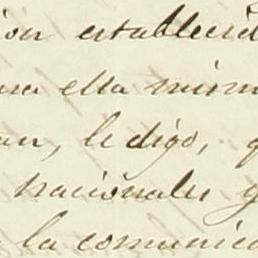 ion establecid
una ella mism
an, le digo, q
nacionales y
la comunica